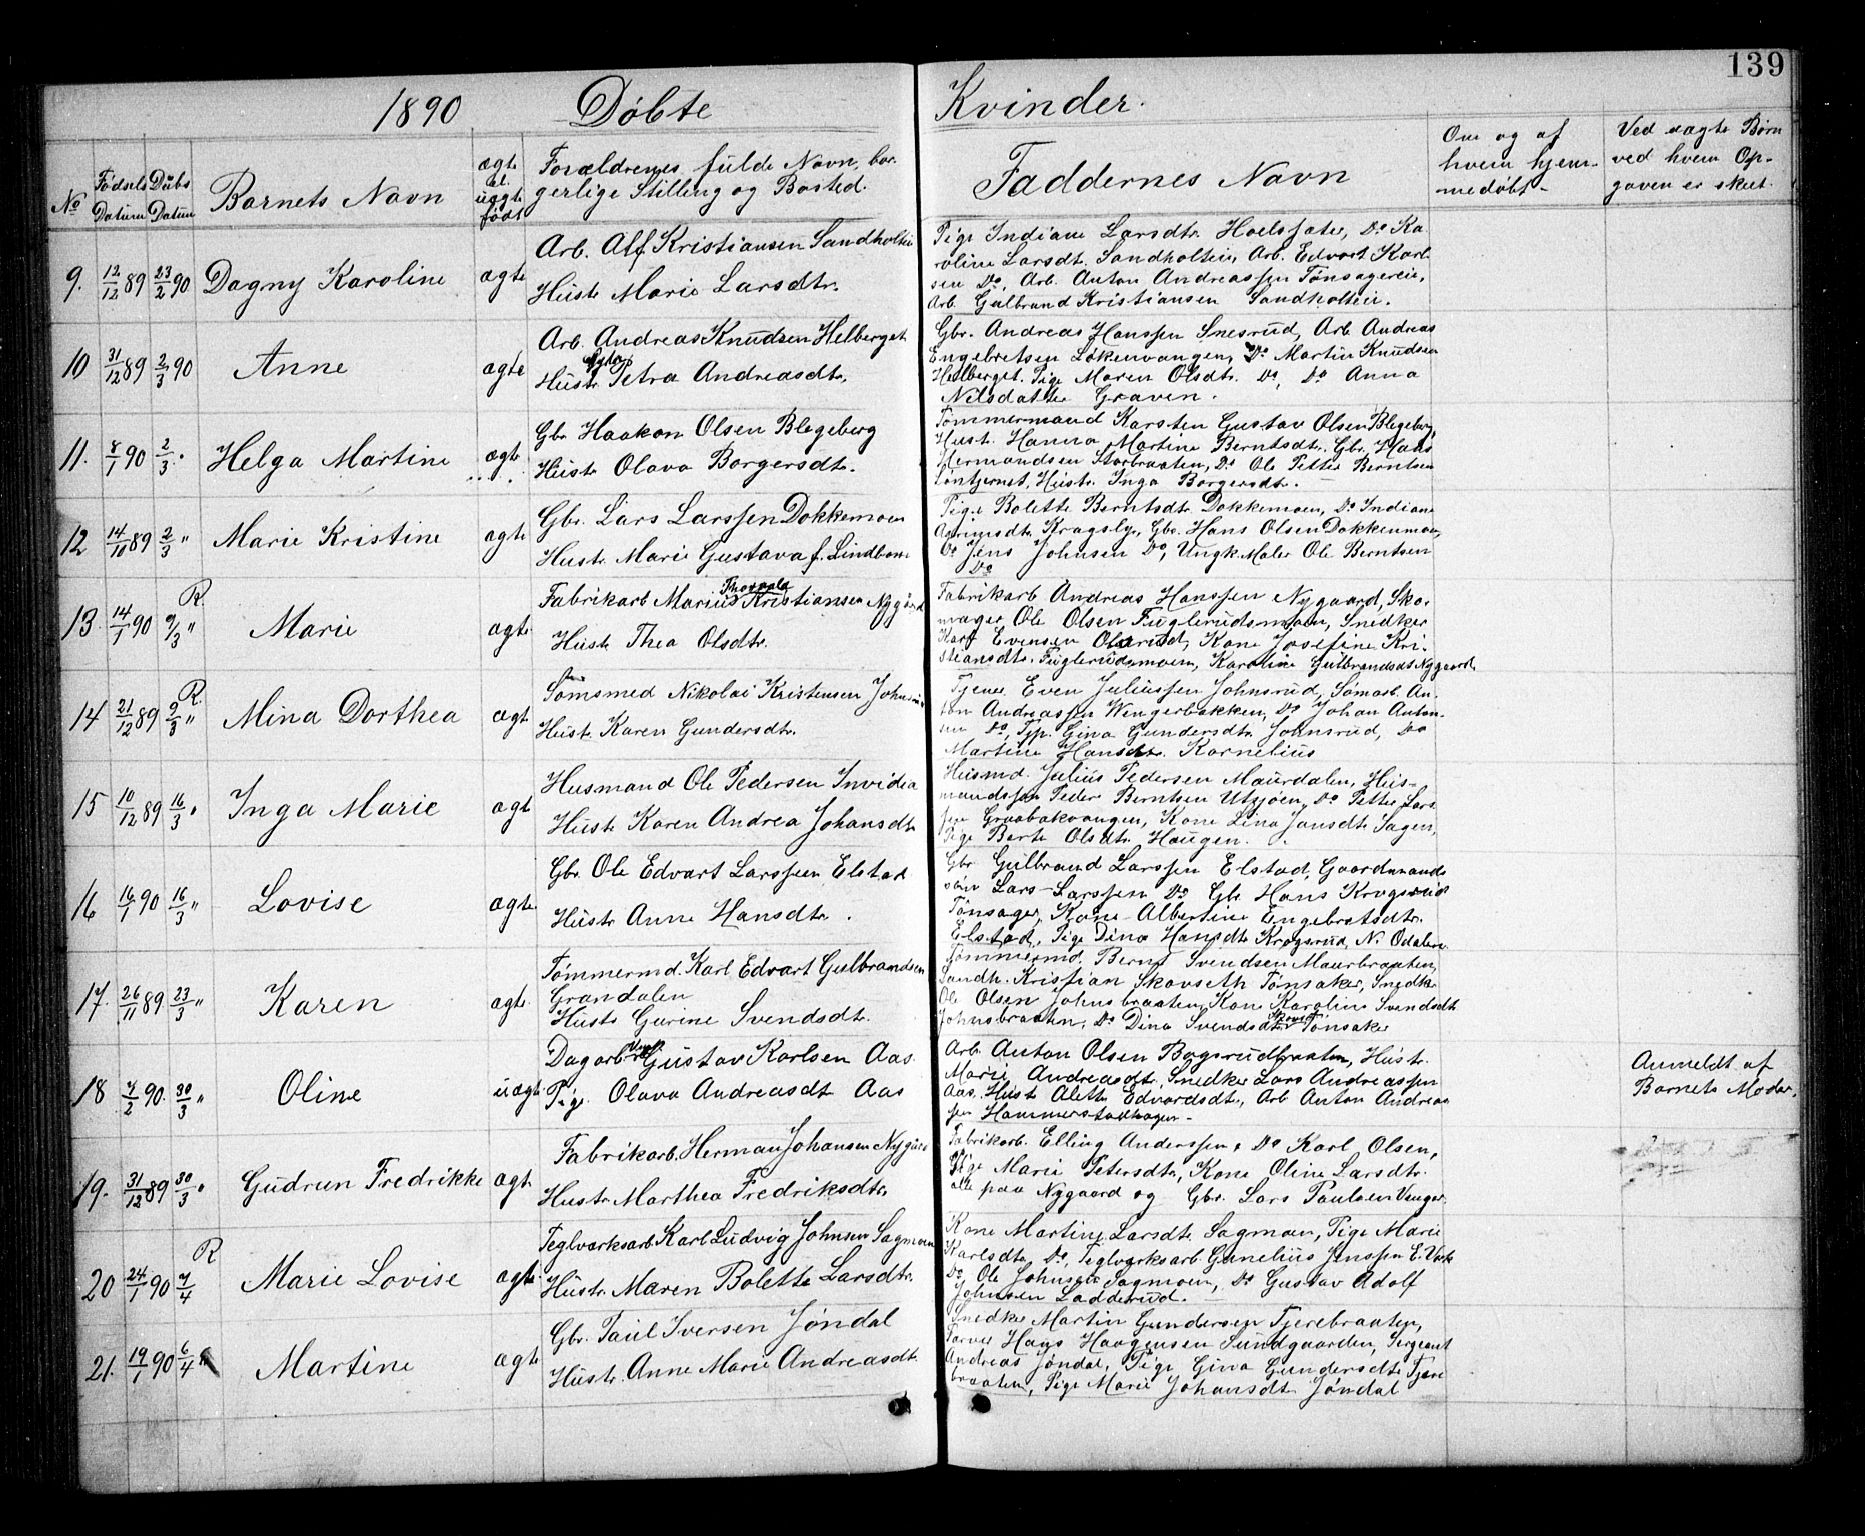 139
1890 Döbte Kvinder.
No
Fødsels Datum
Daabs Datum
Barnets Navn
ægte el. uægte født
Forældrenes fulde Navn, borgerlige Stilling og Bosted.
Faddernes Navn
Om og af hvem hjemmedøbt
Ved uægte Børn ved hvem Opgaven er skeet.
9. 12/12 89 23/2 90 Dagny Karoline ægte
Arb. Alf Kristiansen Sandholtei
Hustr Marie Larsdtr.
Pige Indiane Larsdtr. Do Ka-
roline Larsdt. Sandholtei, Arb. Edvart Karl-
sen Do, Arb. Anton Andreassen Tønsagereie,
Arb. Gulbrand Kristiansen Sandholtei.
10 31/12 89 2/3 90 Anne ægte
Arb. Andreas Knudsen Helberget
Hustr Petra Andreasdtr.
Gbr. Andreas Hanssen Snesrud, Arb. Andreas
Engebretsen Løkenvangen, Do Martin Knudsen
Helberget. Pige Maren Olsdtr. Do, Do Anna
Nilsdatter Graven.
11. 8/1 90 2/3 " Helga Martine ægte
Gbr Haakon Olsen Blegeberg
Hustr Olava Borgersdtr.
Tømmermand Karsten Gustav Olsen Blegeberg,
Hust. Hanna Martine Berntsdtr. Gbr. Hans
Hermandsen Storbraaten, Do Ole Petter Berntsen
Hustr. Inga Borgersdtr.
12 14/10 89 2/3 " Marie Kristine ægte
Gbr. Lars Larssen Dokkemoen
Hustr Marie Gustava f. Lindbom
Pige Bolette Berntsdtr. Dokkemoen, Do Indiane
Kragsby, Gbr. Hans Olsen Dokkenmoen,
Do Jens Johnsen Do, Ungk. Maler Ole Berntsen
Do
13. 14/1 90 9/3 " R. Marie ægte
Thorvald
Fabrikarb Marius Kristiansen Nygård
Hustr Thea Olsdtr.
Fabrikarb Andreas Hanssen Nygaard, Sko-
mager Ole Olsen Fuglerudsmoen, Snedker
Karl Evensen Olerud, Kone Josefine Kri-
stiansdtr. Fuglerudsmoen, Karoline Gulbrandsdt Nygaard
14 21/12 89 9/3 " R. Mina Dorthea ægt
Sømsmed Nikolai Kristensen
Hustr. Karen Gundersdtr.
Tjener. Even Juliussen Johnsrud, Sømarb. An-
ton Andreassen Wengerbakken, Do Johan Anton-
sen Do, Gina Gundersdtr Johnsrud, Do
Martine Hansdtr. Kornelius
15 10/12 89 16/3 " Inga Marie ægt
Husmand Ole Pedersen Invidia
Hustr Karen Andrea Johansdtr
Husmd. Julius Pedersen Maurdalen, Hus-
mandssøn Peder Berntsen Utsjøen, Do Petter Lars-
sen Graabakvangen, Kone Lina Jansdtr Sagen,
Pige Berte Olsdtr Haugen.
16 16/1 90 16/3 " Lovise ægte
Gbr. Ole Edvart Larssen Elstad
Hustr Anne Hansdtr.
Gbr Gulbrand Larssen Elstad, Gaardmands
søn Lars Larssen Do Gbr Hans Krogsrud
Tønsager, Kone Albertine Engebretsdtr.
Elstad, Pige Dina Hansdtr Krogsrud, N. Odalen
17. 26/11 89 23/3 " Karen ægte
Tømmermd. Karl Edvart Gulbrandsen
Grandalen
Hustr Gurine Svendsdtr.
Tømmermd. Bernt Svendsen Maurbraaten,
Landh. Kristian Skovseth Tønsaker, Snedker
Ole Olsen Johnsbraaten, Kone Karoline Svendsdtr
Johnsbraaten, Do Dina Svendsdtr Tønsaker
18 7/2 90. 30/3 " Oline uægt
Dagarb. Ungk. Gustav Karlsen Aas
Pig. Olava Andreasdt Aas
Arb Anton Olsen Bagsrudbraaten, Hustr.
Marie Andreasdtr, Snedker Lars Andreassen
Aas, Hustr Alette Edvardsdtr, Arb Anton Andreas
sen Hammerstadhagen
Anmeldt af
Barnets Moder.
19. 31/12 89 30/3 " Gudrun Fredrikke ægt.
Fabrikarb. Herman Johansen
Hustr. Marthea Fredriksdtr.
Fabrikarb. Elling Anderssen, Do Karl Olsen,
Pige Marie Petersdtr, Kone Oline Larsdtr.
alle paa Nygaard og Gbr. Lars Paulsen Venger.
20 24/1 90 7/4 R Marie Lovise ægte
Teglværksarb Karl Ludvig Johnsen Sagmoen
Hustr. Maren Bolette Larsdtr.
Kone Martine Larsdtr Sagmoen, Pige Marie
Karlsdtr Do, Teglværksarb. Gunelius Jenssen E. Værk
Do Ole Johnsen Sagmoen, Do Gustav Adolf
Johnsen Ladderud.
21. 19/1 90 6/4 Martine ægte
Gbr. Paul Iversen Jøndal
Hustr. Anne Marie Andreasdt.
Snedker Martin Gundersen Tjerebraaten,
Farver Hans Haagensen Sundgaarden, Sergeant
Andreas Jøndal, Pige Gina Gundersdtr Tjære
braaten, Pige Marie Johansdtr Jøndal